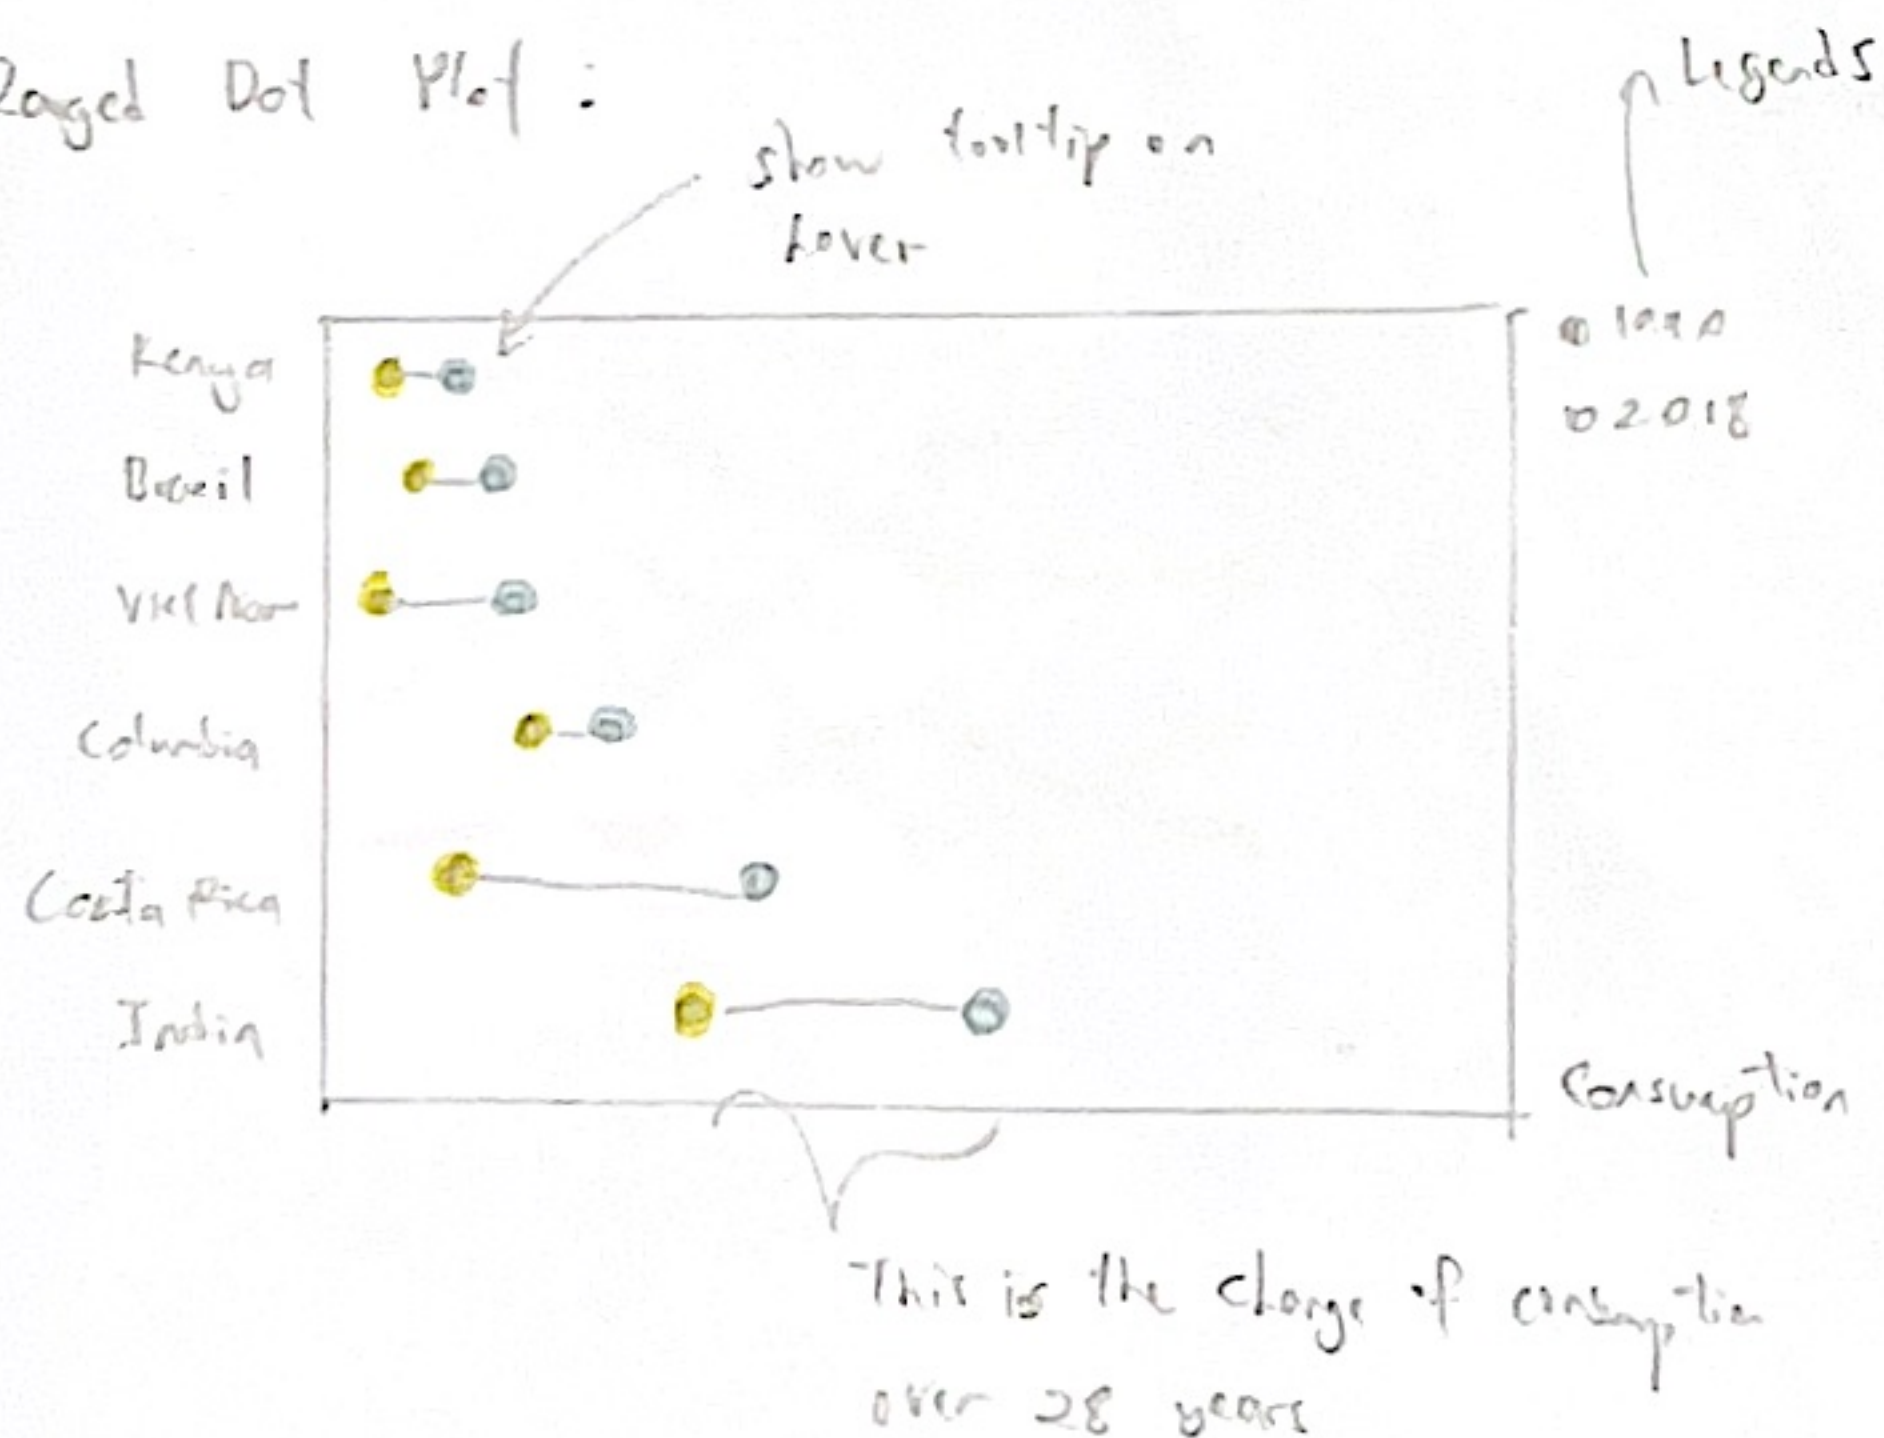 Ranged Dot Plot :
Legends
show tooltip on
hover
1990
2018
Kenya
Brazil
Viet Nam
Columbia
Costa Rica
India
Consumption
This is the change of consumption
over 28 years